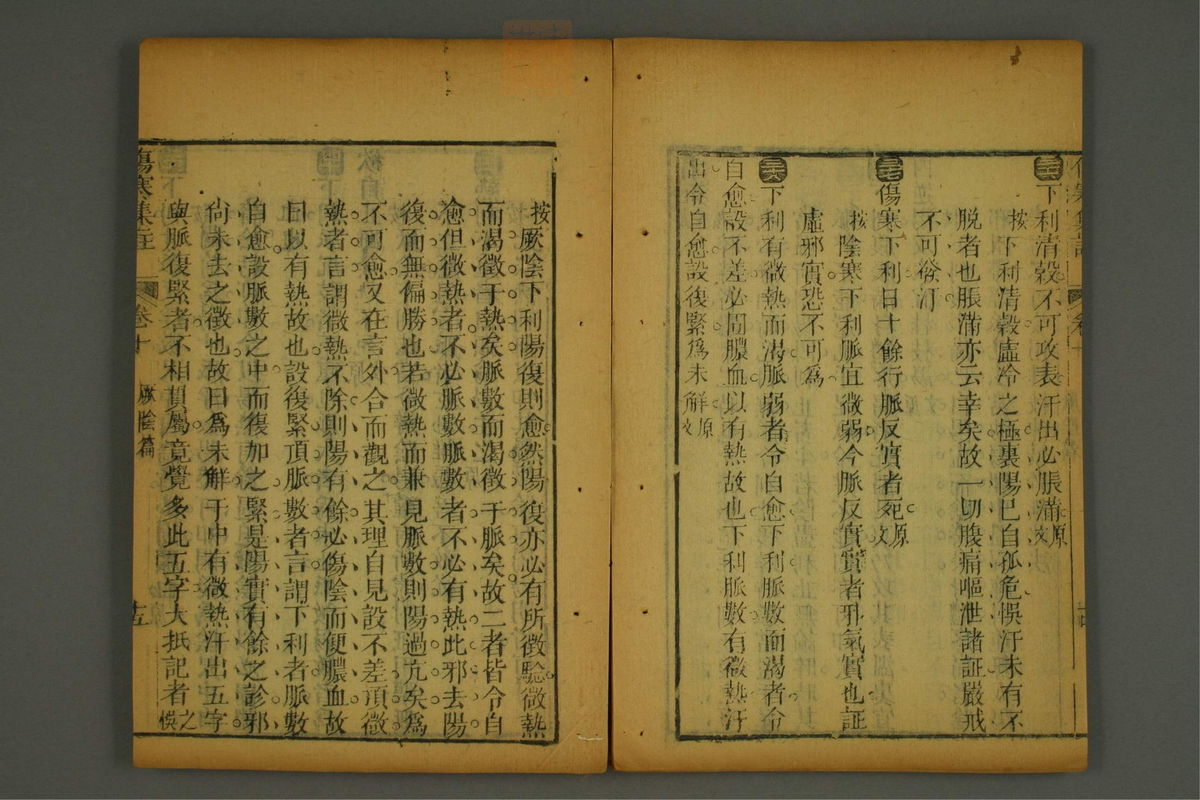 傷寒集註 卷十
下利清穀不可攻表汗出必脹滿原文
按下利清穀虛冷之極裏陽已自孤危悞汗未有不
脫者也脹滿亦云幸矣故一切腹痛嘔泄諸証嚴戒
不可發汗
傷寒下利日十餘行脈反實者死原文
按陰寒下利脈宜微弱今脈反實實者邪氣實也証
虛邪實恐不可為
下利有微熱而渴脈弱者令自愈下利脈數而渴者令
自愈設不差必圊膿血以有熱故也下利脈數有微熱汗
出令自愈設復緊為未解原文
按厥陰下利陽復則愈然陽復亦必有所徵驗微熱
而渴徵于熱矣脈數而渴徵于脈矣故二者皆令自
愈但微熱者不必脈數脈數者不必有熱此邪去陽
復而無偏勝也若微熱而兼見脈數則陽過亢矣為
不可愈又在言外合而觀之其理自見設不差頂微
熱者言謂微熱不除則陽有餘必傷陰而便膿血故
曰以有熱故也設復緊頂脈數者言謂下利者脈數
自愈設脈數之中而復加之緊是陽實有餘之診邪
尙未去之徵也故曰為未解于中有微熱汗出五字
與脈復緊者不相貫屬竟覺多此五字大抵記者之悞
傷寒集註 卷十 厥陰篇 十五